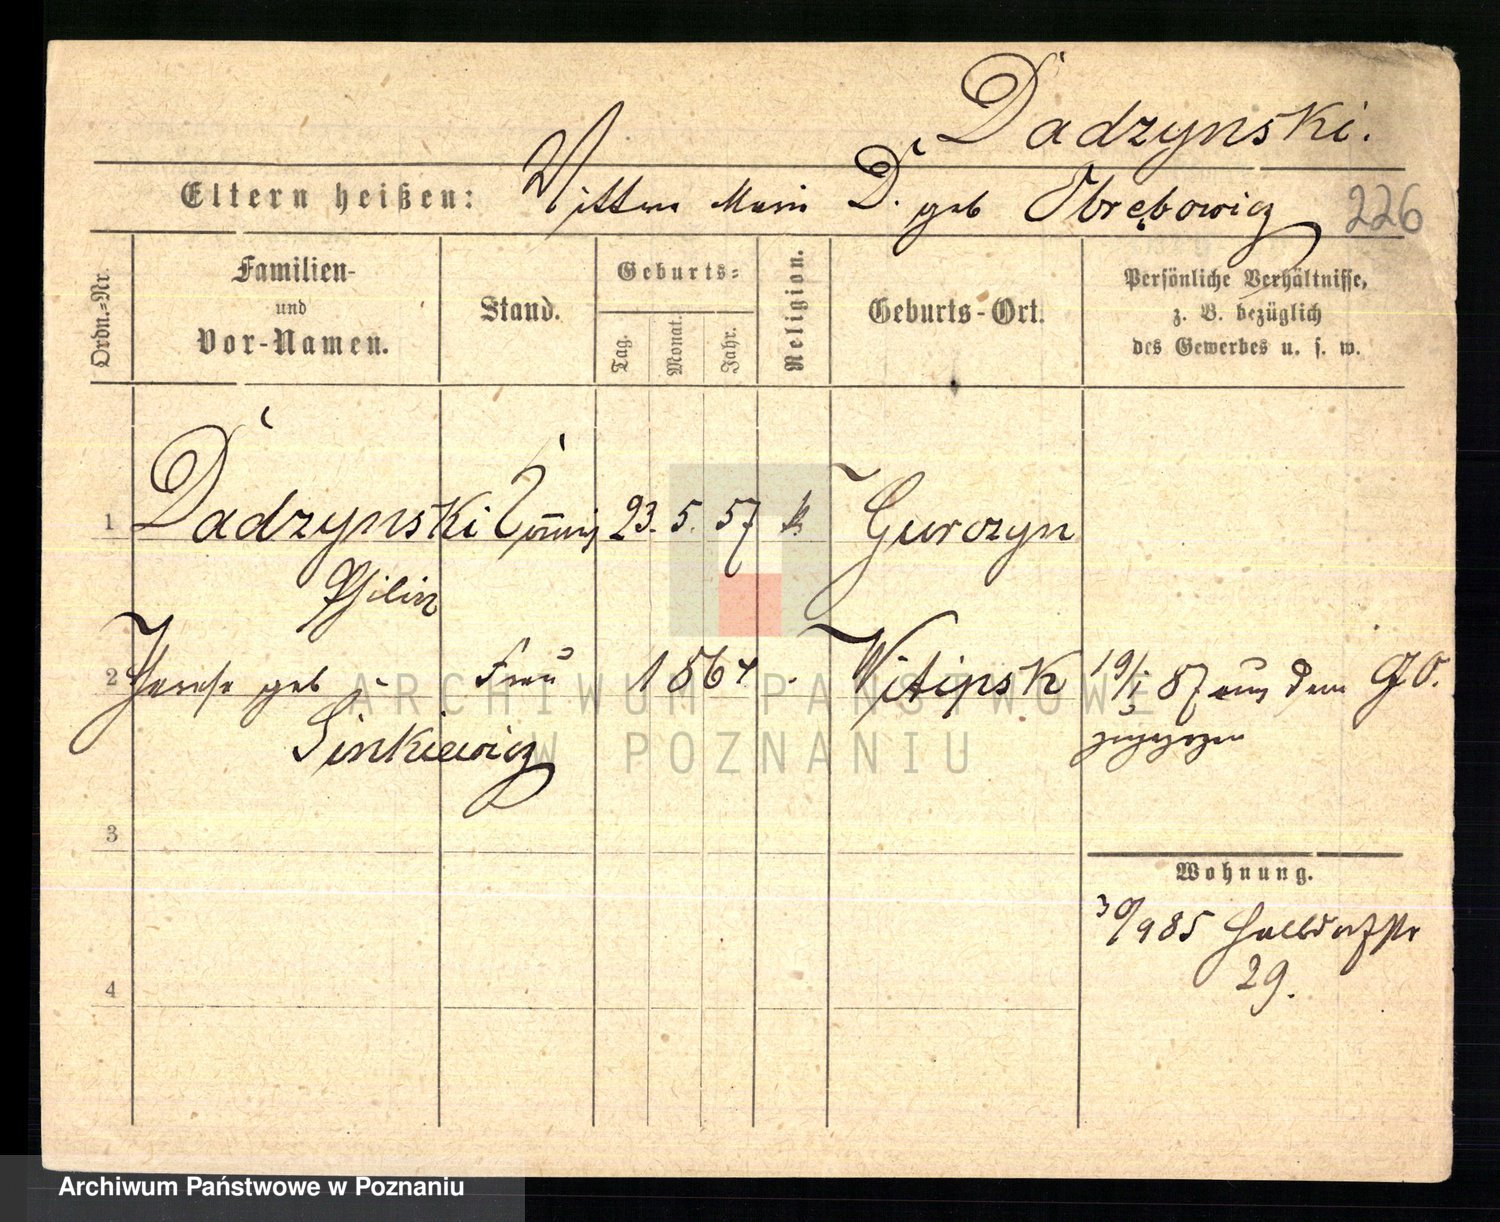 Dadzynski.
Eltern heißen: Mutter Marie D. geb Obrębowicz 226
Ordn.-Nr. Familien- und Vor-Namen. Stand. Geburts= Tag. Monat. Jahr. Religion. Geburts-Ort. Persönliche Verhältnisse, z. B. bezüglich des Gewerbes u. s. w.
1 Dadzynski 23. 5. 57 k Gurczyn
Philip
2 geb Frau 1864 Witipsk 19/3 87 aus dem
Sinkiewicz zugezogen
3
Wohnung.
30/9 85 Halbdorfstr
29.
4
ARCHIWUM PAŃSTWOWE
W POZNANIU
Archiwum Państwowe w Poznaniu